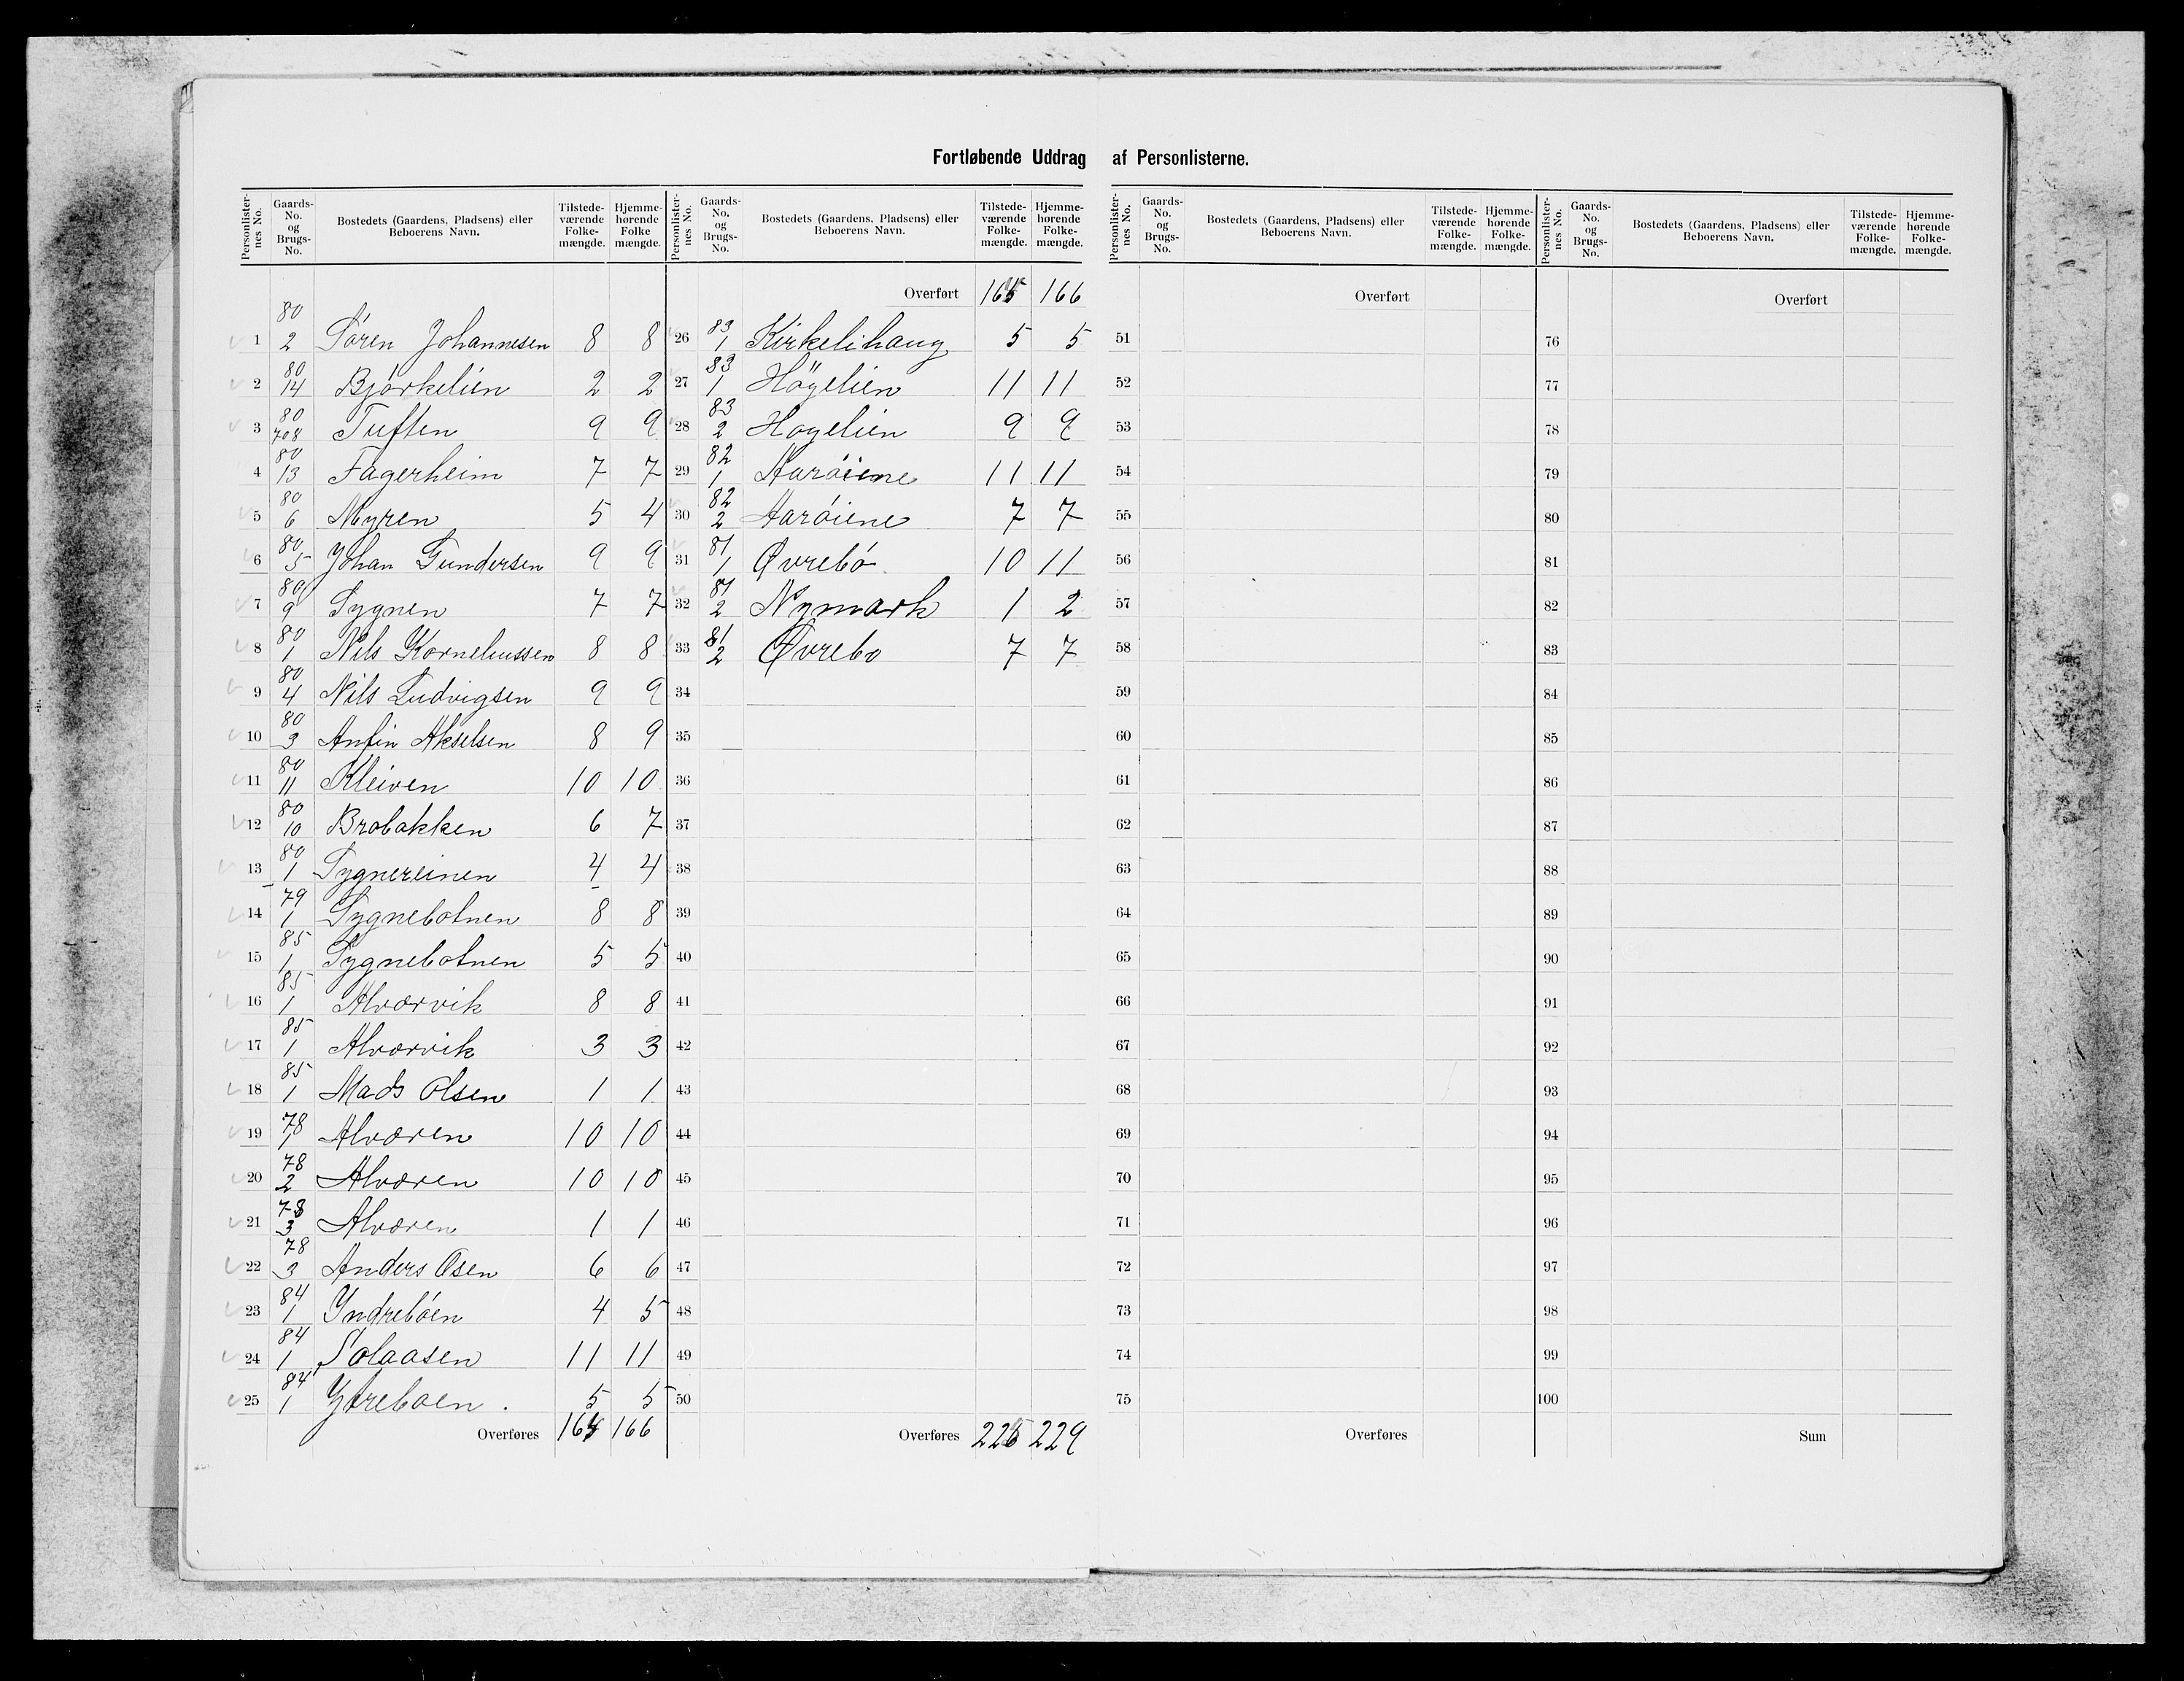 Fortløbende Uddrag af Personlisterne.
Personlister-nes No. Gaards-No. og Brugs-No. Bostedets (Gaardens, Pladsens) eller Beboerens Navn. Tilstede-værende Folke-mængde. Hjemme-hørende Folke mængde.
Personlister-nes No. Gaards-No. og Brugs-No. Bostedets (Gaardens, Pladsens) eller Beboerens Navn. Tilstede-værende Folke-mængde. Hjemme-hørende Folke-mængde.
Personlister-nes No. Gaards-No. og Brugs-No. Bostedets (Gaardens, Pladsens) eller Beboerens Navn. Tilstede-værende Folke-mængde. Hjemme-hørende Folke-mængde.
Personlister-nes No. Gaards-No. og Brugs-No. Bostedets (Gaardens, Pladsens) eller Beboerens Navn. Tilstede-værende Folke-mængde. Hjemme-hørende Folke-mængde.
1 80/2 Sören Johannesen 8 8
2 80/14 Björkelien 2 2
3 80/7o8 Tuften 9 9
4 80/13 Fagerheim 7 7
5 80/6 Myren 5 4
6 80/5 Johan Gundersen 9 9
7 80/9 Sygnen 7 7
8 80/1 Nils Korneliussen 8 8
9 80/4 Nils Ludvigsen 9 9
10 80/3 Anfin Akselsen 8 9
11 80/11 Kleiven 10 10
12 80/10 Brobakken 6 7
13 80/1 Sygnereinen 4 4
14 79/1 Sygnebotnen 8 8
15 85/1 Sygnebotnen 5 5
16 85/1 Alværvik 8 8
17 85/1 Alværvik 3 3
18 85/1 Mads Olsen 1 1
19 78/1 Alværen 10 10
20 78/2 Alværen 10 10
21 78/3 Alværen 1 1
22 78/3 Anders Osen 6 6
23 84/1 Yndreböen 4 5
24 84/1 Solaasen 11 11
25 84/1 Ytreboen . 5 5
Overføres 166
Overført 165 166
26 83/1 Kirkelihaug 5 5
27 83/1 Högelien 11 11
28 83/2 Hogelien 9 9
29 82/1 Aaröiene 11 11
30 82/2 Aaröiene 7 7
31 81/1 Øvrebö 10 11
32 81/2 Nymark 1 2
33 81/2 Øvrebo 7 7
34
35
36
37
38
39
40
41
42
43
44
45
46
47
48
49
50
Overføres 229
Overført
51
52
53
54
55
56
57
58
59
60
61
62
63
64
65
66
67
68
69
70
71
72
73
74
75
Overføres
Overført
76
77
78
79
80
81
82
83
84
85
86
87
88
89
90
91
92
93
94
95
96
97
98
99
100
Sum